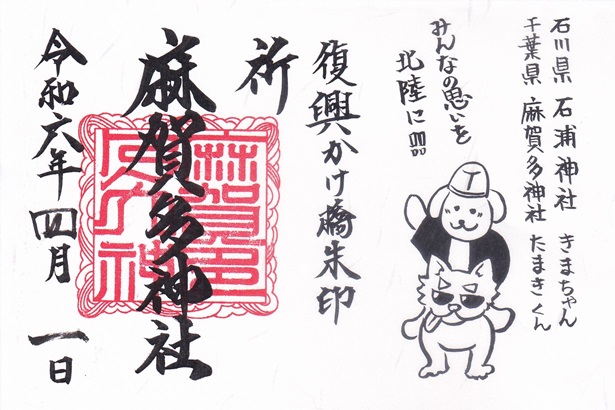 石川県 石浦神社 きまちゃん
千葉県 麻賀多神社 たまきくん
みんなの思いを
北陸に!!!
復興かけ橋朱印
祈
麻賀多神社
令和六年四月一日